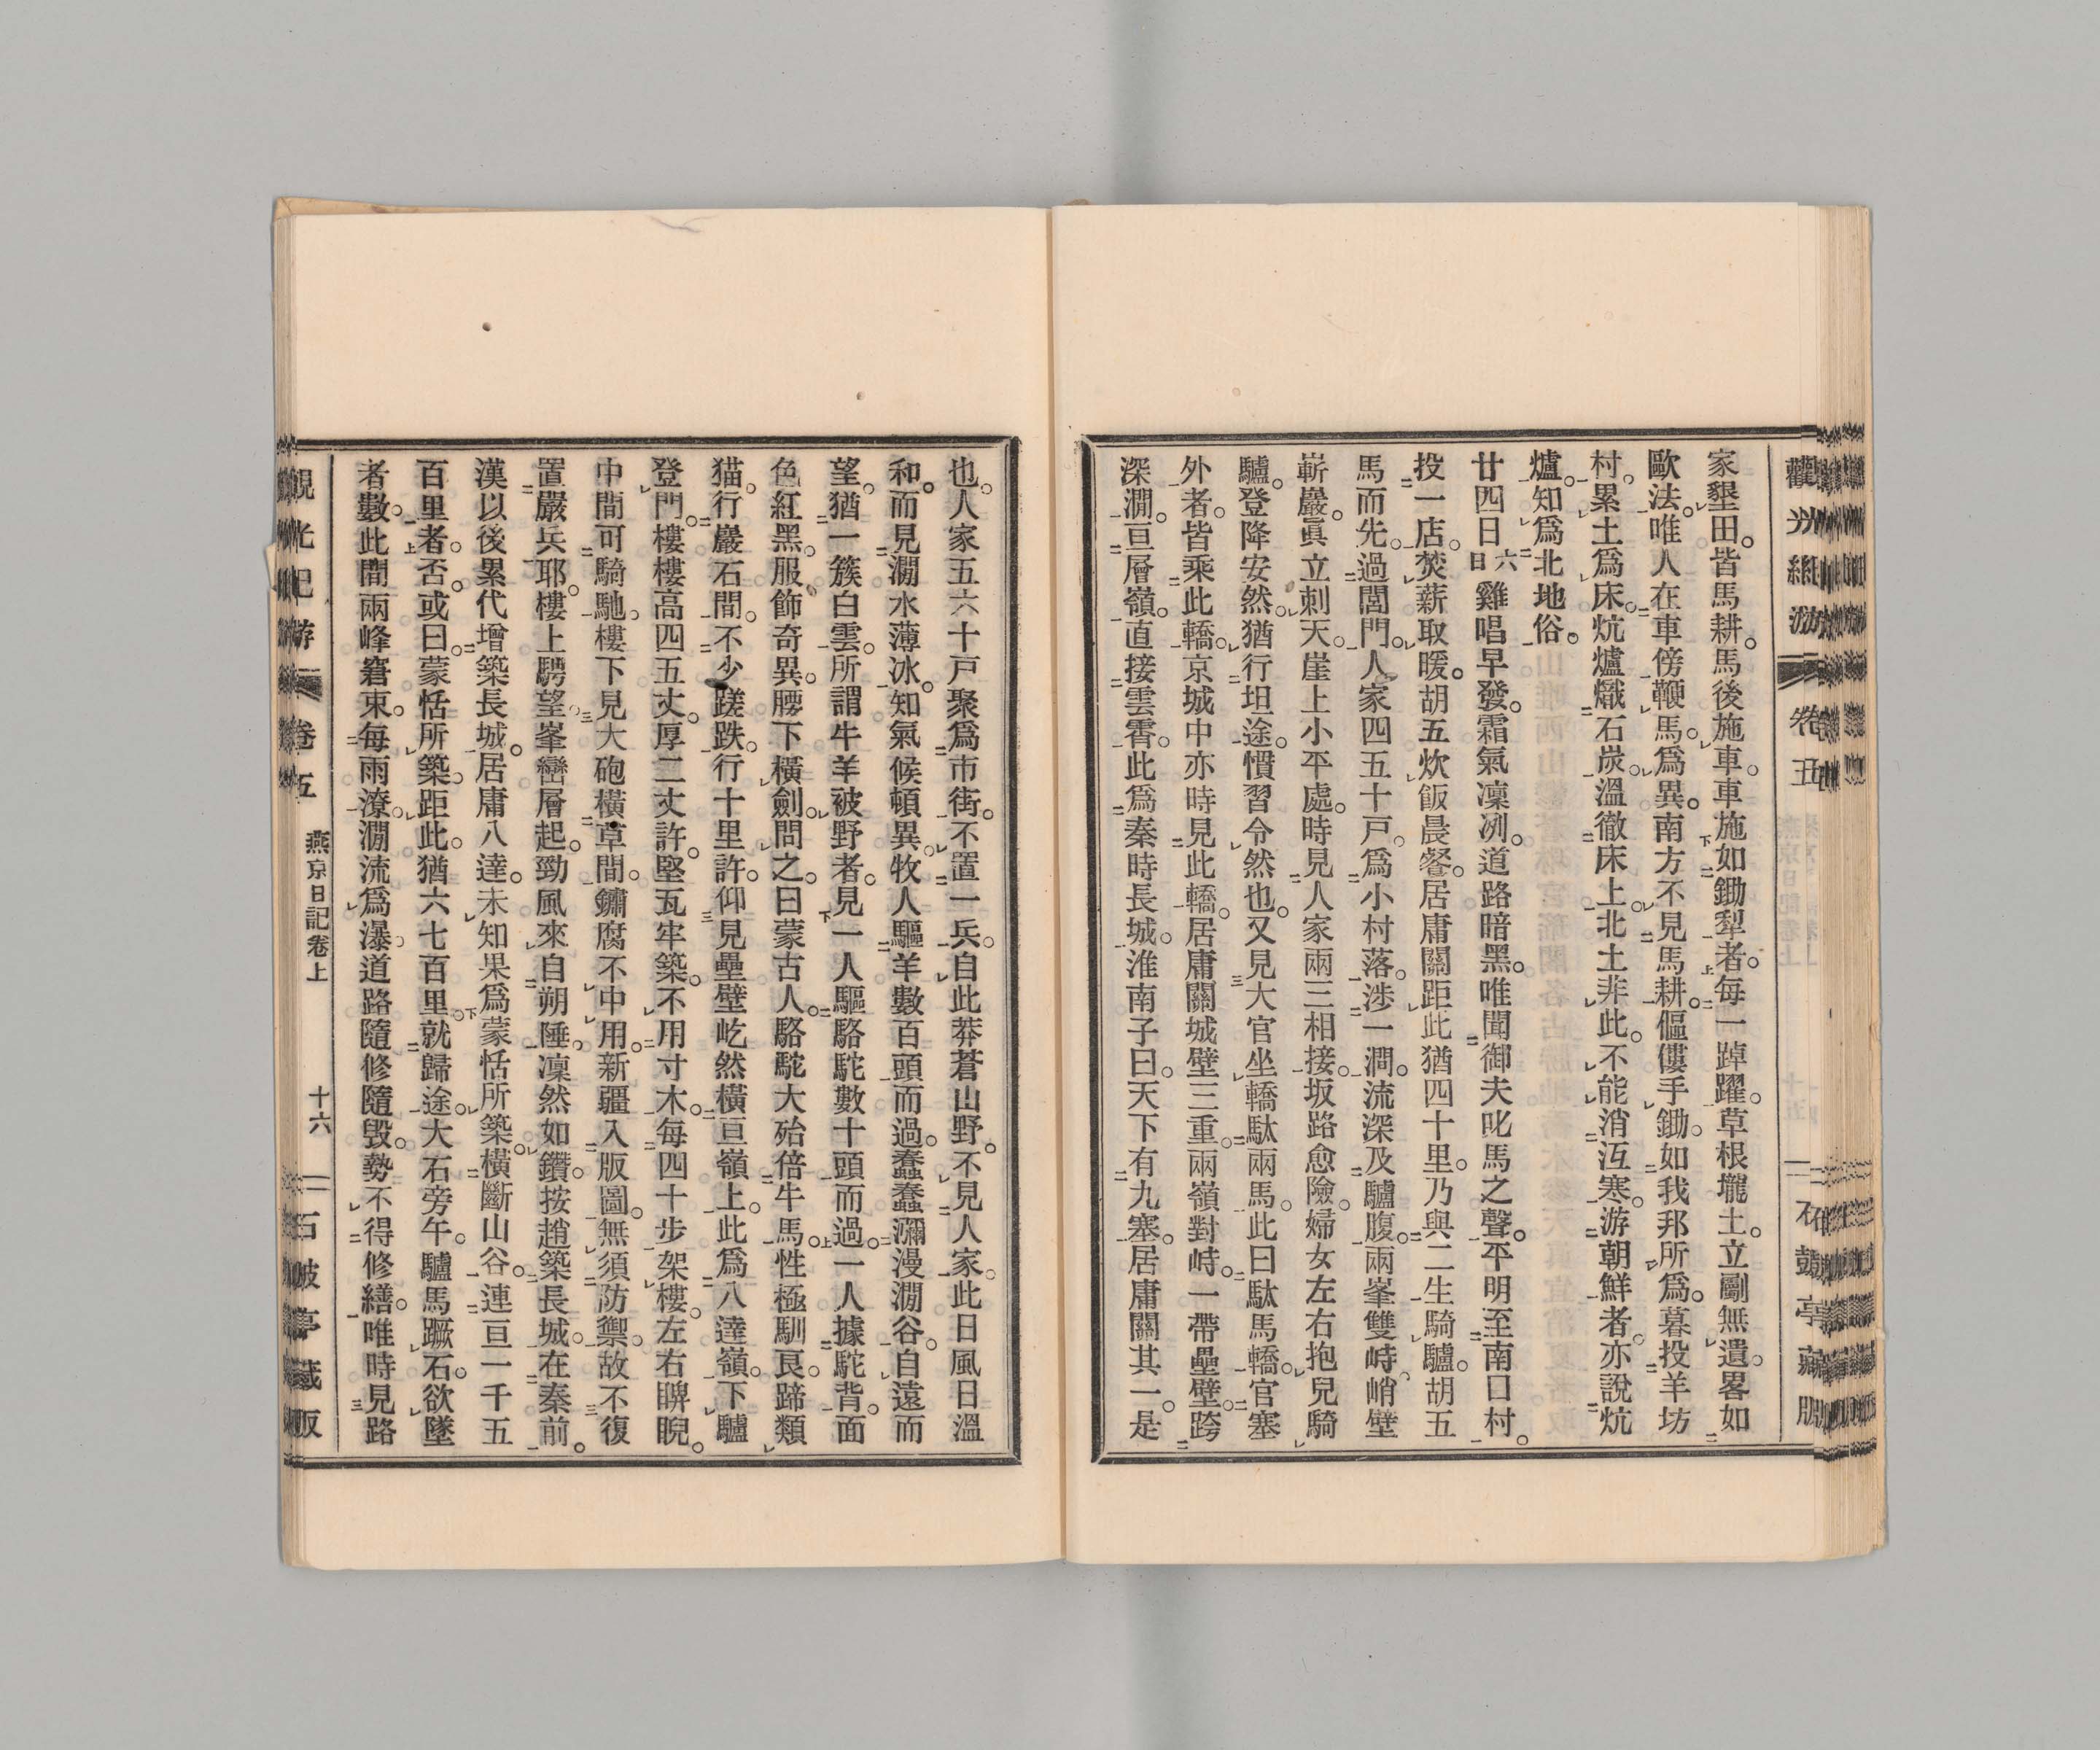 家墾田。皆馬耕。馬後施車。車施如鋤犁者。每一踔躍。草根壠土。立劚無遺。畧如
歐法。唯人在車傍鞭馬。爲異。南方不見馬耕。傴僂手鋤。如我邦所爲。暮投羊坊
村。累土爲床。炕爐熾石炭。溫徹床上。北土非此。不能消沍寒。游朝鮮者。亦說炕
爐。知爲北地俗。
廿四日六日雞唱早發。霜氣凜冽。道路暗黑。唯聞御夫叱馬之聲。平明至南口村。
投一店。焚薪取暖。胡五炊飯晨餐。居庸關距此猶四十里。乃與二生騎驢。胡五
馬而先。過閭門。人家四五十戸。爲小村落。涉一澗。流深及驢腹。兩峯雙峙。峭壁
嶄巖。眞立刺天。崖上小平處。時見人家兩三相接。坂路愈險。婦女左右抱兒騎
驢。登降安然。猶行坦途。慣習令然也。又見大官坐轎駄兩馬。此曰駄馬轎。官塞
外者。皆乘此轎。京城中亦時見此轎。居庸關城壁三重。兩嶺對峙。一帶壘壁。跨
深澗。亘層嶺。直接雲霄。此爲秦時長城。淮南子曰。天下有九塞。居庸關其一。是
也。人家五六十戸聚爲市街。不置一兵。自此莽蒼山野。不見人家。此日風日溫
和。而見澗水薄冰。知氣候頓異。牧人驅羊數百頭而過。蠢蠢瀰漫澗谷。自遠而
望。猶一簇白雲。所謂牛羊被野者。見一人驅駱駝數十頭而過。一人據駝背。面
色紅黑。服飾奇異。腰下橫劍。問之。曰蒙古人。駱駝大殆倍牛馬。性極馴良。蹄類
猫。行巖石間。不少蹉跌。行十里許。仰見壘壁屹然橫亘嶺上。此爲八達嶺。下驢
登門。樓樓高四五丈。厚二丈許。堅瓦牢築。不用寸木。每四十步架樓。左右睥睨。
中間可騎馳。樓下見大砲橫草間。鏽腐不中用。新疆入版圖。無須防禦。故不復
置嚴兵耶。樓上騁望。峯巒層起。勁風來自朔陲。凜然如鑽。按趙築長城。在秦前。
漢以後累代增築長城。居庸八達。未知果爲蒙恬所築。橫斷山谷。連亘一千五
百里者否。或曰。蒙恬所築。距此。猶六七百里。就歸途。大石旁午。驢馬蹶石。欲墜
者數。此間兩峰窘束。每雨潦。澗流爲瀑。道路隨修隨毀。勢不得修繕。唯時見路
卷五
燕京日記卷上
十六